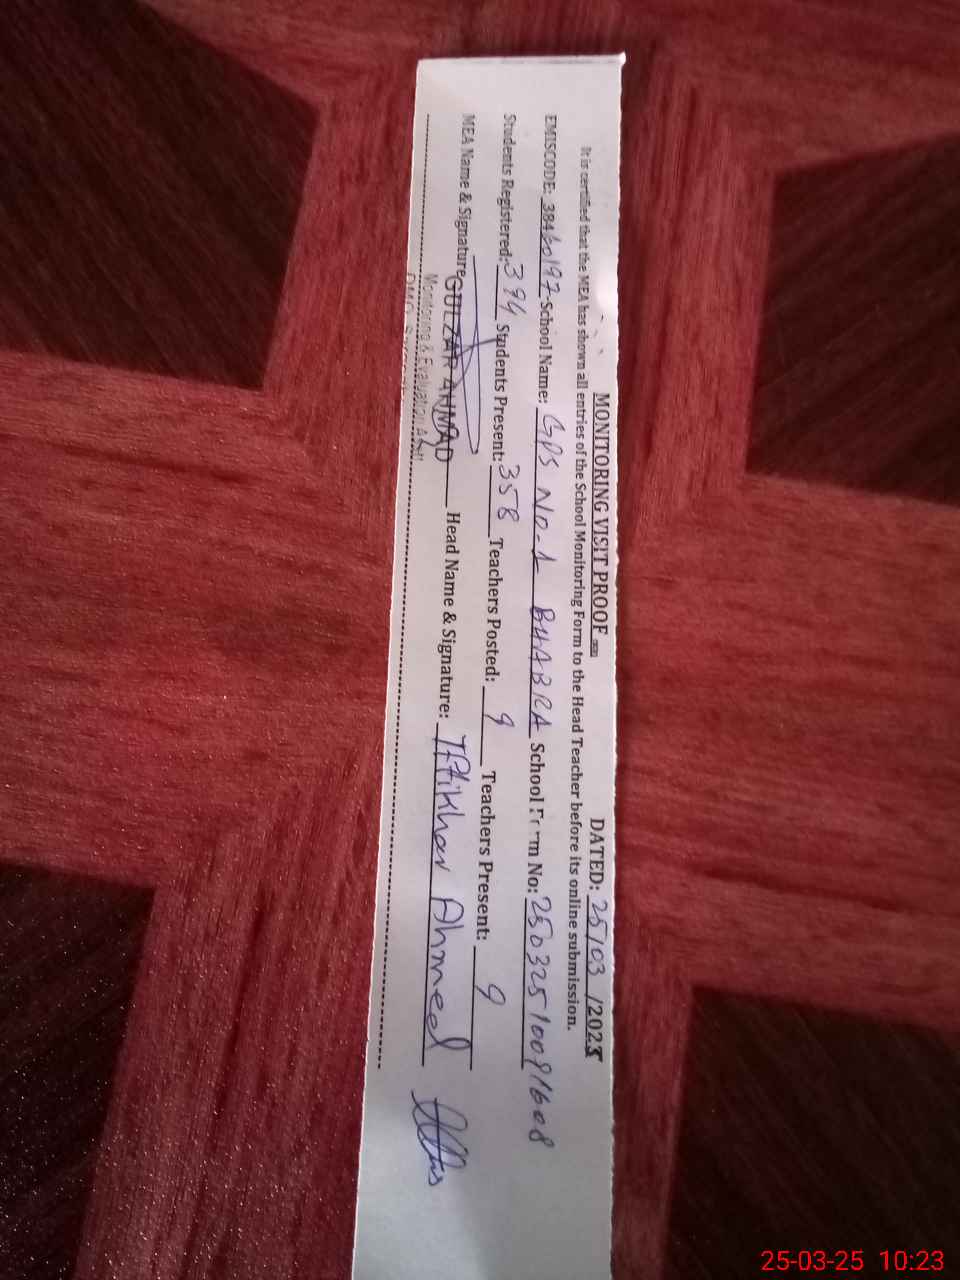 MONITORING VISIT PROOF DATED: 25/03/2025
It is certified that the MEA has shown all entries of the School Monitoring Form to the Head Teacher before its online submission.
EMISCODE: 38460197 School Name: GPS No-1 BHABRA School Form No: 25032510091608
Students Registered: 394 Students Present: 358 Teachers Posted: 9 Teachers Present: 9
MEA Name & Signature GULZAR AHMAD Head Name & Signature: Iftikhar Ahmed
Monitoring & Evaluation Asstt
DMO
25-03-25 10:23